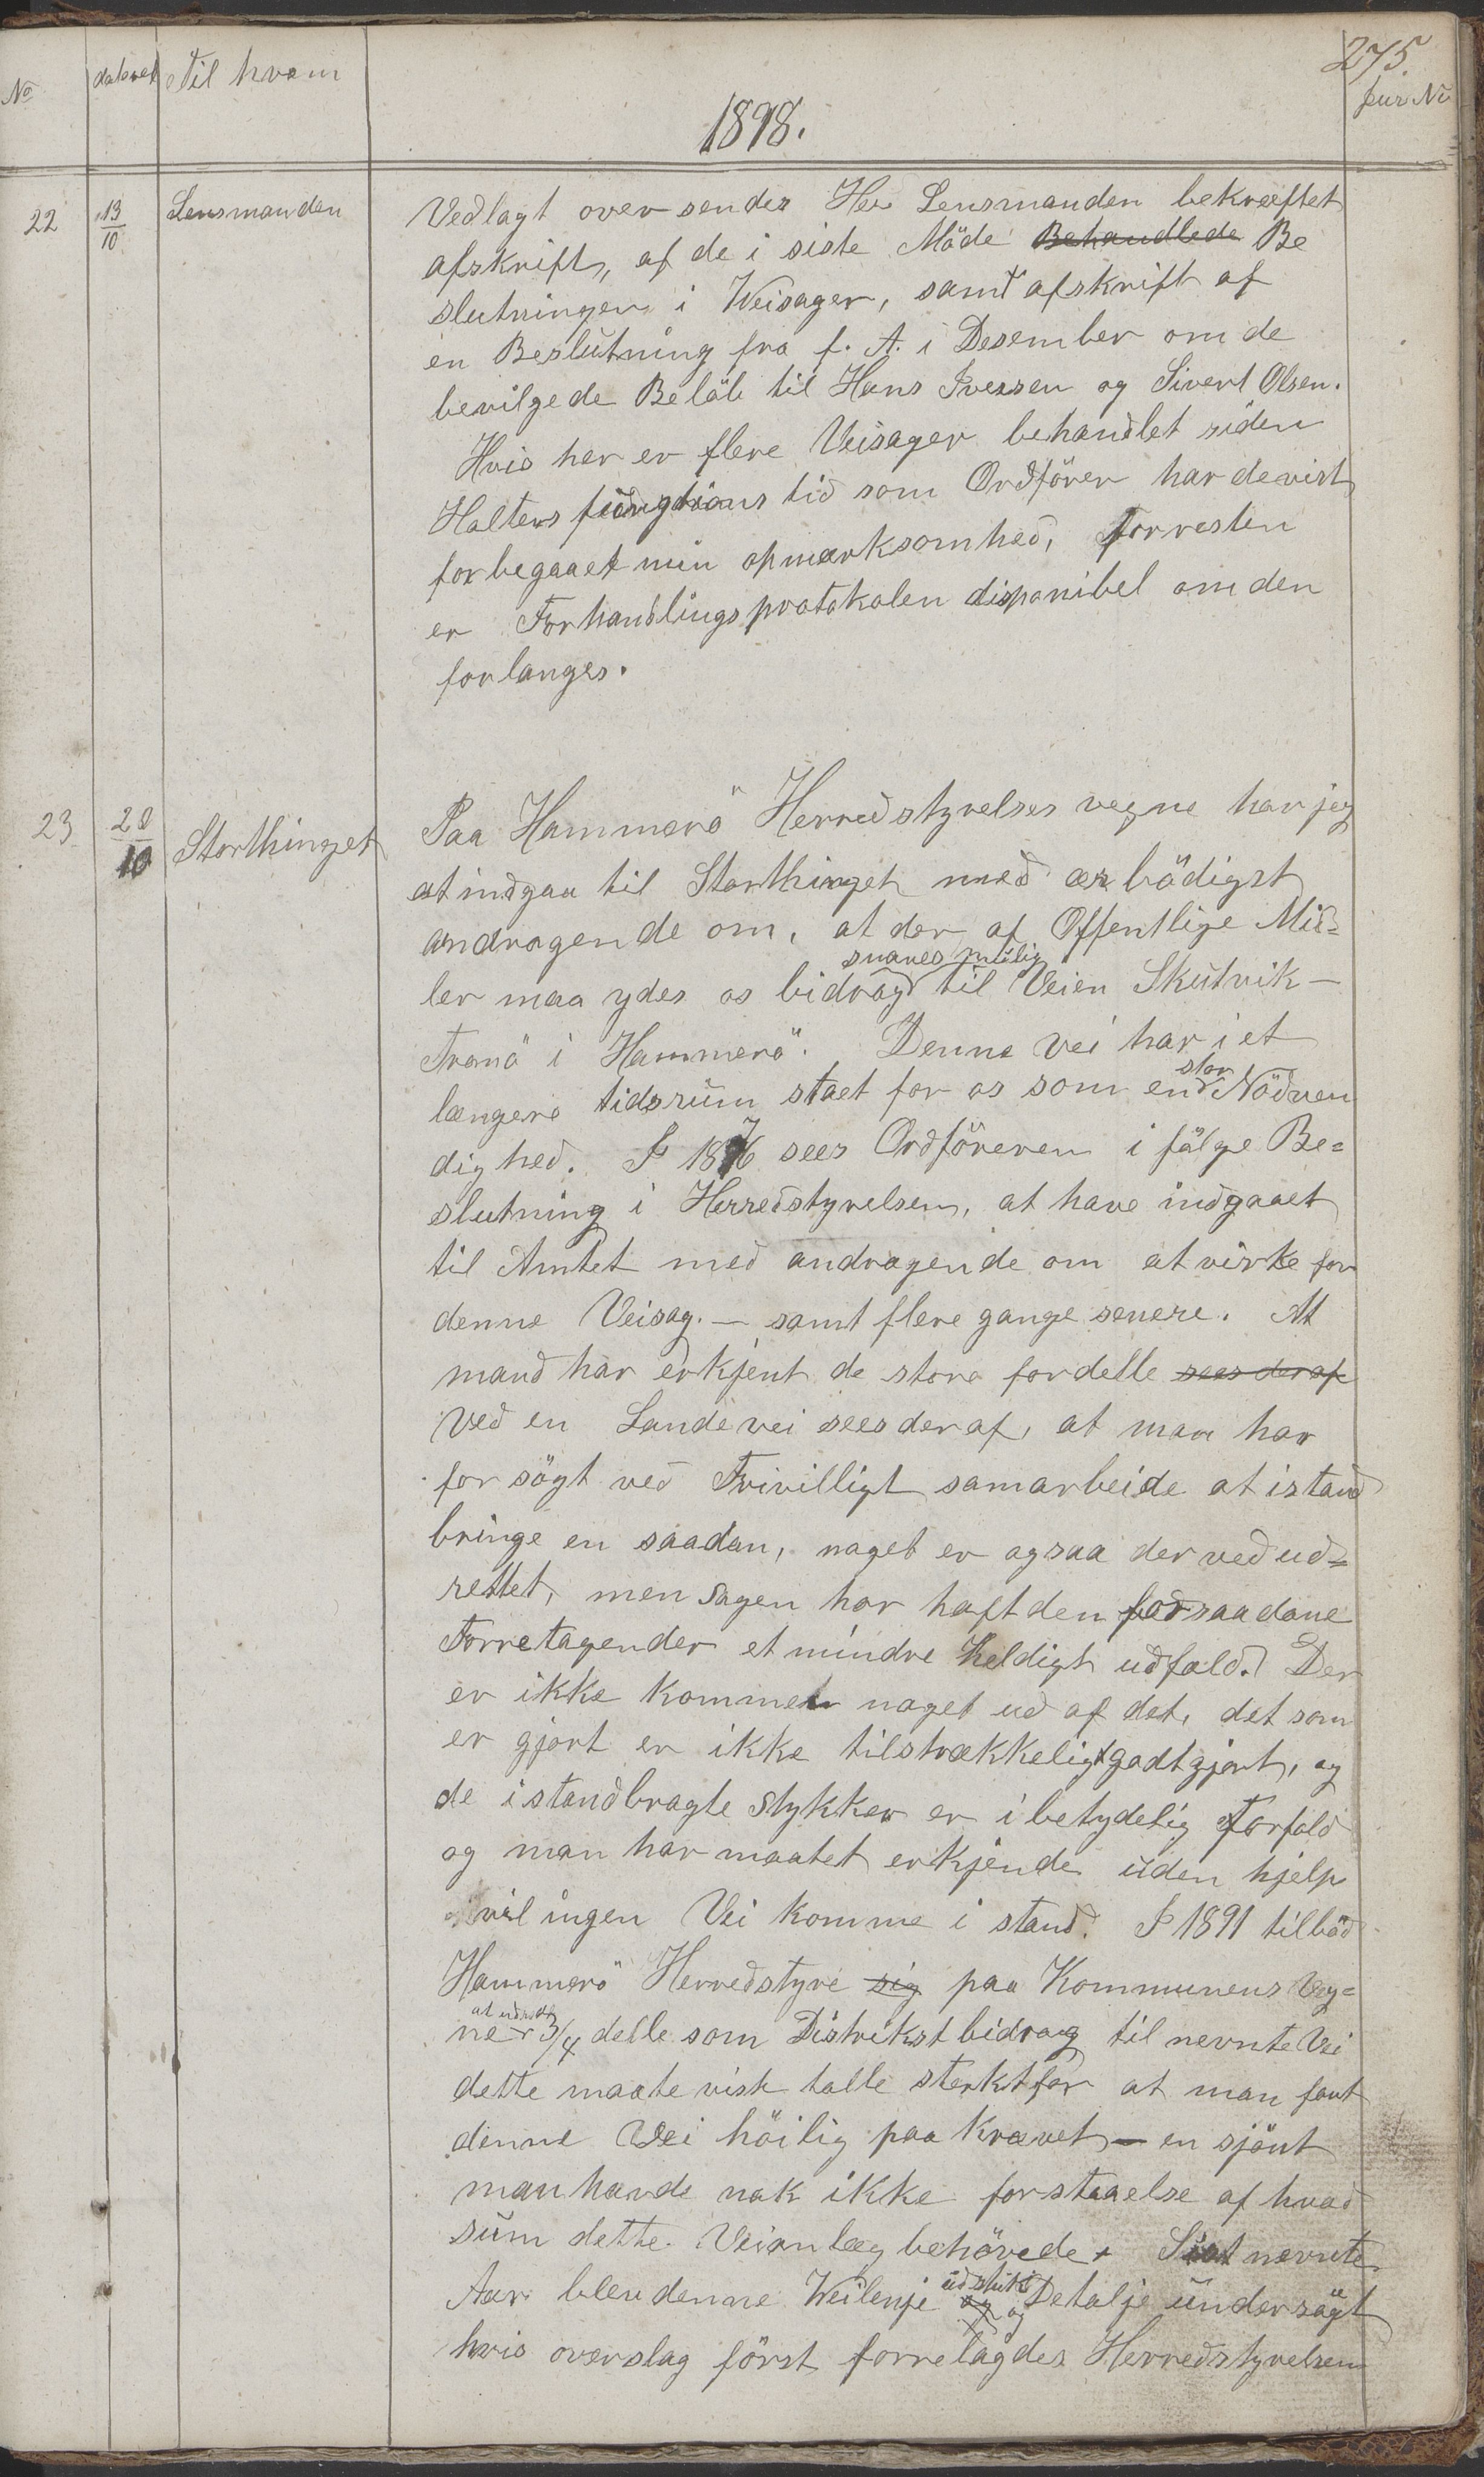 275.
No dateret Til hvem Jur No
1898.
22 13/10 Lensmanden Vedlagt oversendes Her Lensmanden bekræftet
afskrift, af de i siste Möde Behandlede Be
slutninger i Weisager, samt afskrift af
en Beslutning fra f. A. i Desember om de
bevilgede Beläb til Hans Iversen og Sivert Olsen.
Hvis her er flere Veisager behandlet siden
Halters fungtions tid som Ordförer har de vist
forbegaaet min opmærksomhed, Forresten
er Forhandlingsprotokolen disponibel om den
forlanges.
23 28/10 Storthinget Paa Hammerö Herredstyrelses vegne har jeg
at indgaa til Storthinget med ærbödigst
andragende om, at der af Offentlige Mid=
snares mulig
ler maa ydes os bidrag til Veien Skutvik—
Tranö i Hammerö. Denne Vei har i et
stor
længere tidsrum staet for os som end Nödven
dighed. I 1876 sees Ordföreren i fälge Be=
slutning i Herredstyrelsen, at have indgaaet
til Amtet med andragende om at virke for
denne Veisag. — samt flere gange senere. At
mand har erkjent de store fordelle sees deraf
ved en Landevei sees deraf, at man har
forsögt ved Frivilligt samarbeide at istand
bringe en saadan, noget er ogsaa derved ud=
rettet, men sagen har haft den for saadane
Forretagender et mindre heldigt udfald. Der
er ikke kommet noget ud af det, det som
er gjort er ikke tilstrækkeligt godt gjort, og
de istandbragte Stykker er i betydelig Forfald
og man har maatet erkjende uden hjelp
vil ingen Vei komme i stand. I 1891 tilböd
Hammerö Herredstyre sig paa Kommunens Veg=
at udrede
ner 3/4 delle som Distrikst bidrag til nevnte Vei
dette maate vist talle sterkt for at man fant
denne Vei höilig paa krævet — en sjönt
man havde nok ikke forstaaelse af hvad
sum dette Veianlæg behövede. Sist nevnte
udstukt
Aar blev denne Weilenje og og Detalje undersögt
hvis overslag först forrelagdes Herredstyrelsen